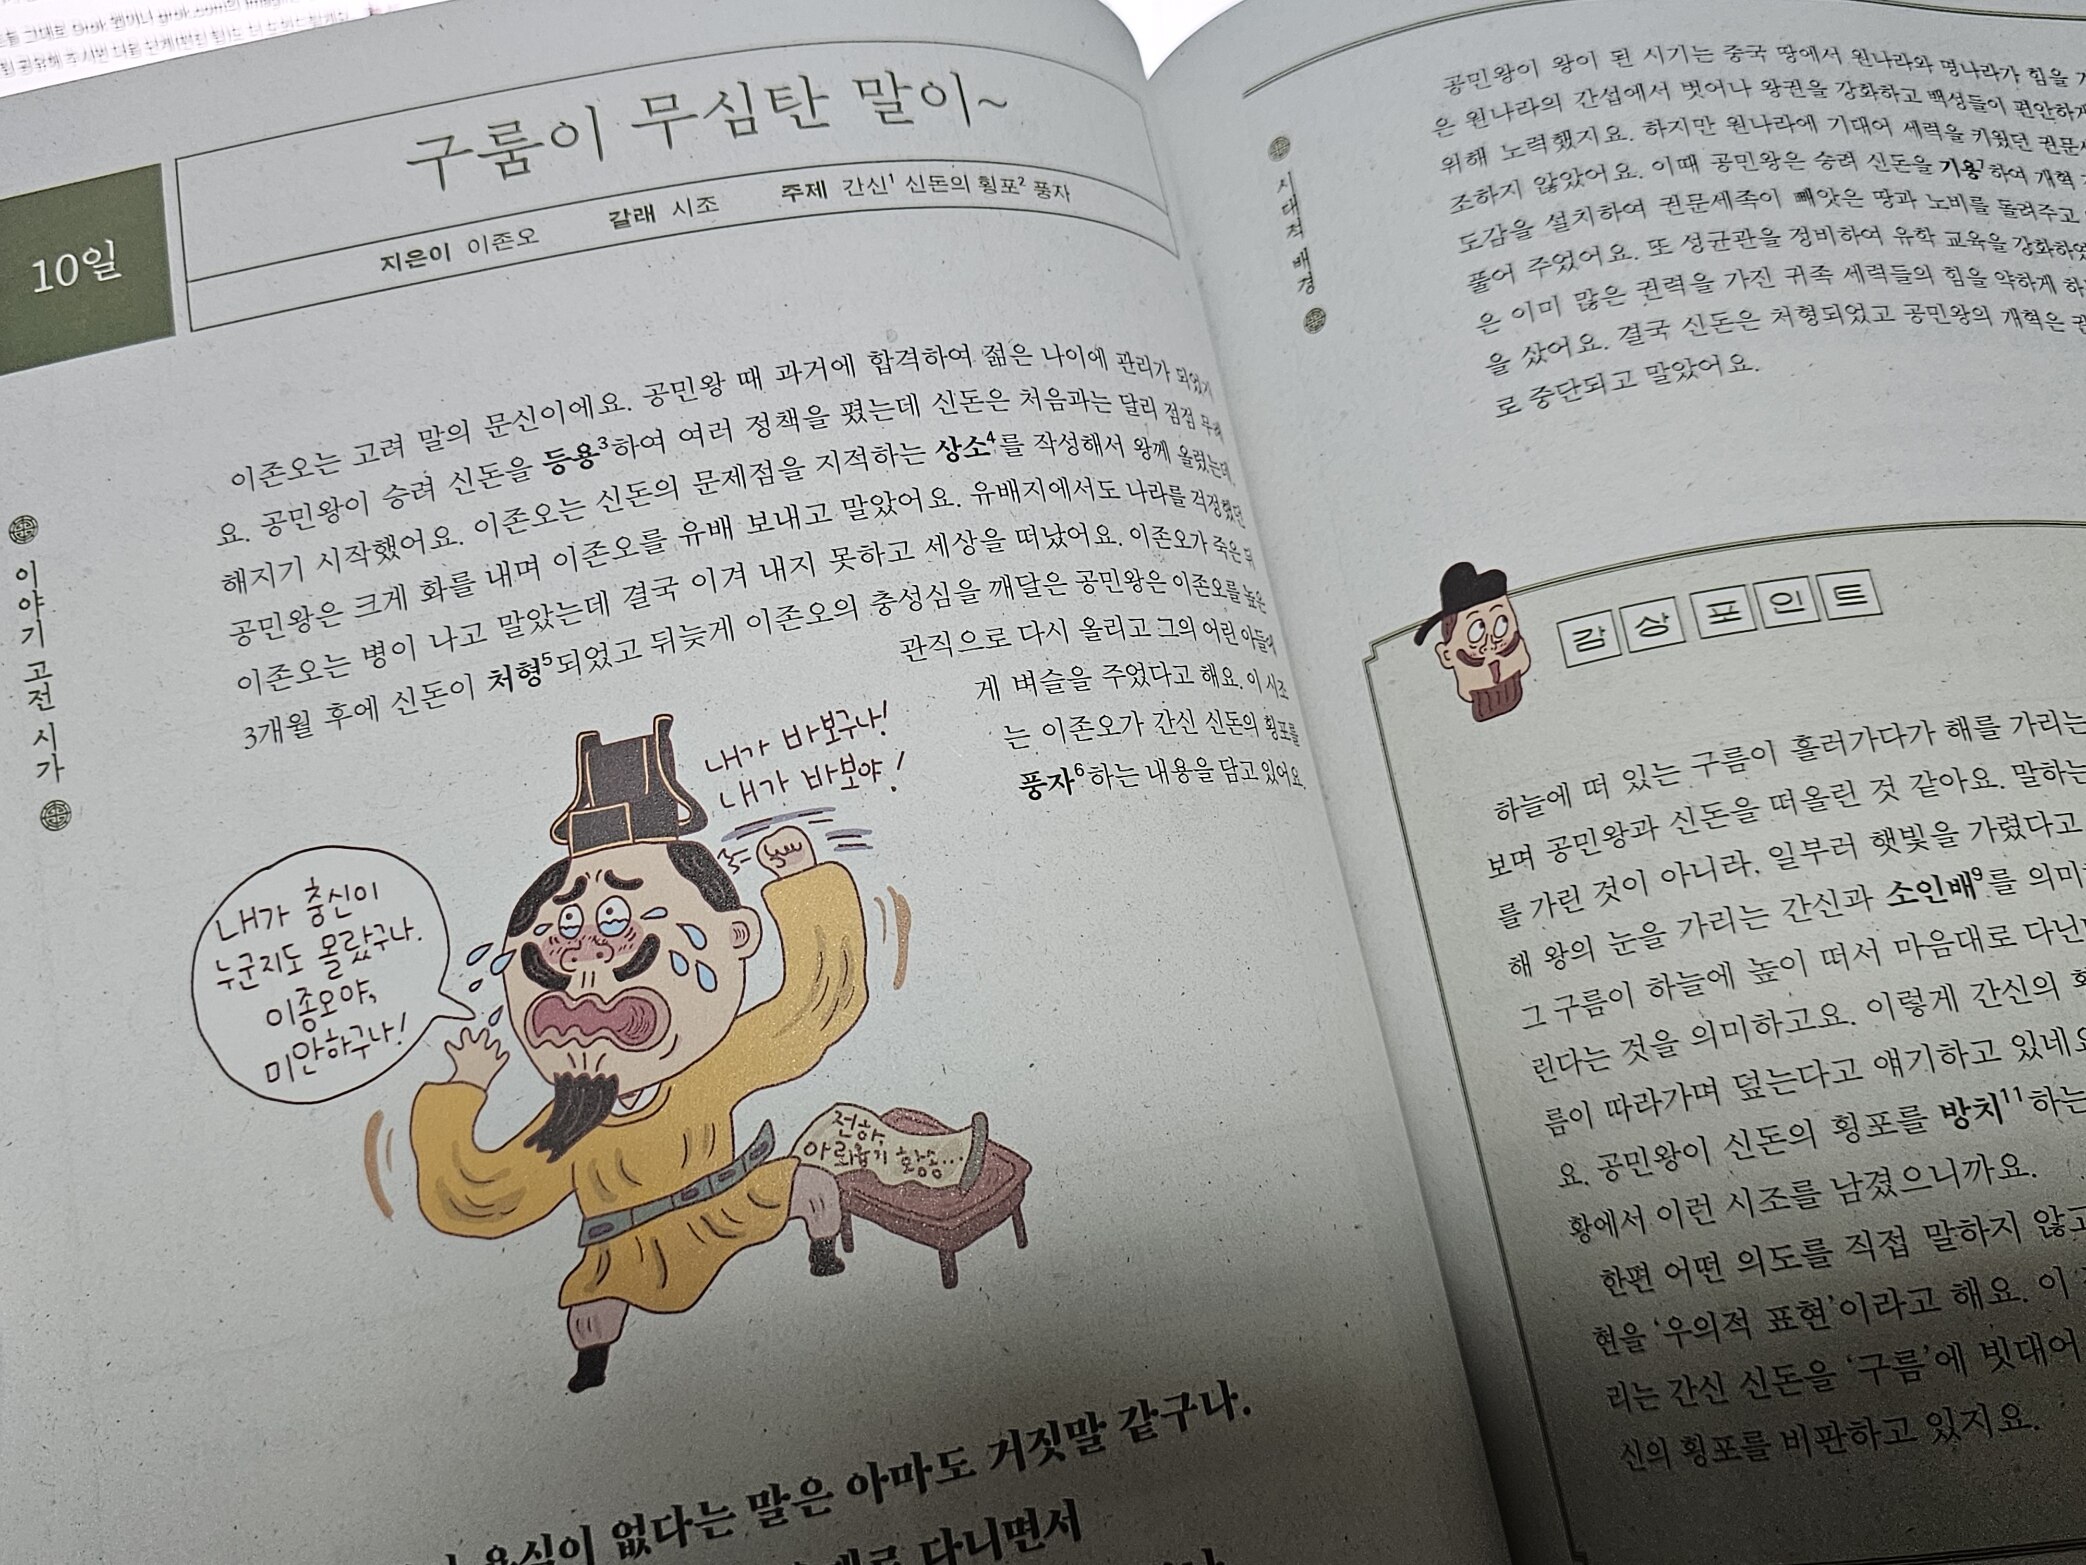 10일
구룸이 무심탄 말이~
지은이 이존오 갈래 시조 주제 간신1 신돈의 횡포2 풍자
이야기 고전 시가
이존오는 고려 말의 문신이에요. 공민왕 때 과거에 합격하여 젊은 나이에 관리가 되었지
요. 공민왕이 승려 신돈을 등용3하여 여러 정책을 폈는데 신돈은 처음과는 달리 점점
해지기 시작했어요. 이존오는 신돈의 문제점을 지적하는 상소4를 작성해서 왕께 올렸는데,
공민왕은 크게 화를 내며 이존오를 유배 보내고 말았어요. 유배지에서도 나라를 걱정했던
이존오는 병이 나고 말았는데 결국 이겨 내지 못하고 세상을 떠났어요. 이존오가 죽은 뒤
3개월 후에 신돈이 처형5되었고 뒤늦게 이존오의 충성심을 깨달은 공민왕은 이존오를 높은
관직으로 다시 올리고 그의 어린 아들에
게 벼슬을 주었다고 해요. 이 시조
는 이존오가 간신 신돈의 횡포를
풍자6하는 내용을 담고 있어요.
내가 바보구나!
내가 바보야!
내가 충신이
누군지도 몰랐구나.
이종오야,
미안하구나!
전하,
아뢰옵기 황송...
욕심이 없다는 말은 아마도 거짓말 같구나.
다니면서
시대적 배경
공민왕이 왕이 된 시기는 중국 땅에서 원나라와 명나라가 힘을
은 원나라의 간섭에서 벗어나 왕권을 강화하고 백성들이 편안하게
위해 노력했지요. 하지만 원나라에 기대어 세력을 키웠던
조하지 않았어요. 이때 공민왕은 승려 신돈을 기용7하여 개혁
도감을 설치하여 권문세족이 빼앗은 땅과 노비를 돌려주고
풀어 주었어요. 또 성균관을 정비하여 유학 교육을
은 이미 많은 권력을 가진 귀족 세력들의 힘을 약하게
을 샀어요. 결국 신돈은 처형되었고 공민왕의 개혁은
로 중단되고 말았어요.
감상포인트
하늘에 떠 있는 구름이 흘러가다가 해를 가리는
보며 공민왕과 신돈을 떠올린 것 같아요. 말하는
를 가린 것이 아니라, 일부러 햇빛을 가렸다고
해 왕의 눈을 가리는 간신과 소인배9를
그 구름이 하늘에 높이 떠서 마음대로
린다는 것을 의미하고요. 이렇게 간신의
름이 따라가며 덮는다고 얘기하고 있네요
요. 공민왕이 신돈의 횡포를 방치11하는
황에서 이런 시조를 남겼으니까요.
한편 어떤 의도를 직접 말하지 않고
현을 ‘우의적 표현’이라고 해요. 이
리는 간신 신돈을 ‘구름’에 빗대어
신의 횡포를 비판하고 있지요.